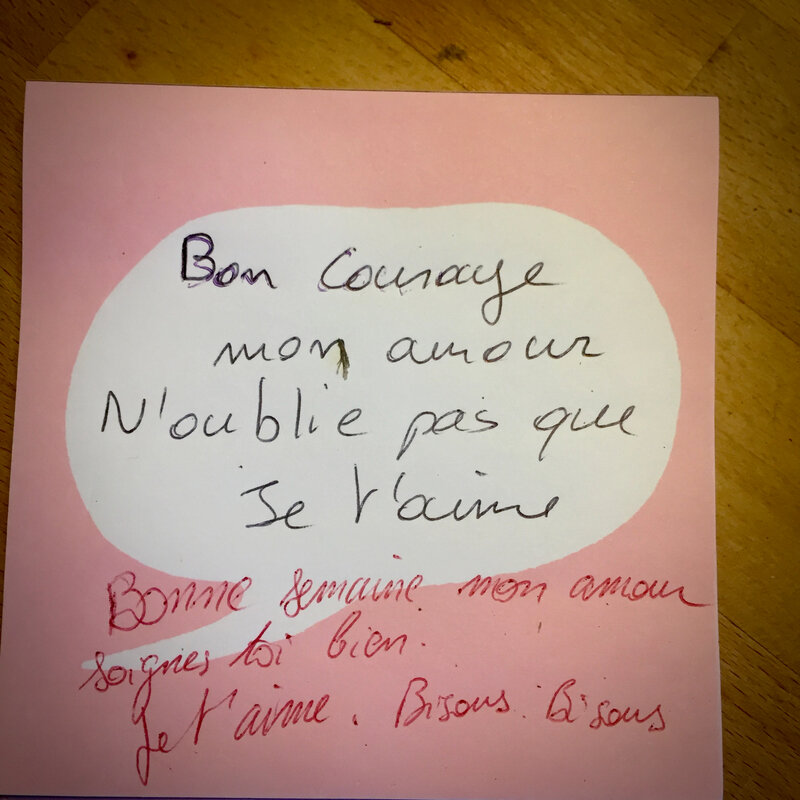 Bon Courage
mon amour
N'oublie pas que
Je t'aime
Bonne semaine mon amour
soignes toi bien.
Je t'aime. Bisous. Bisous